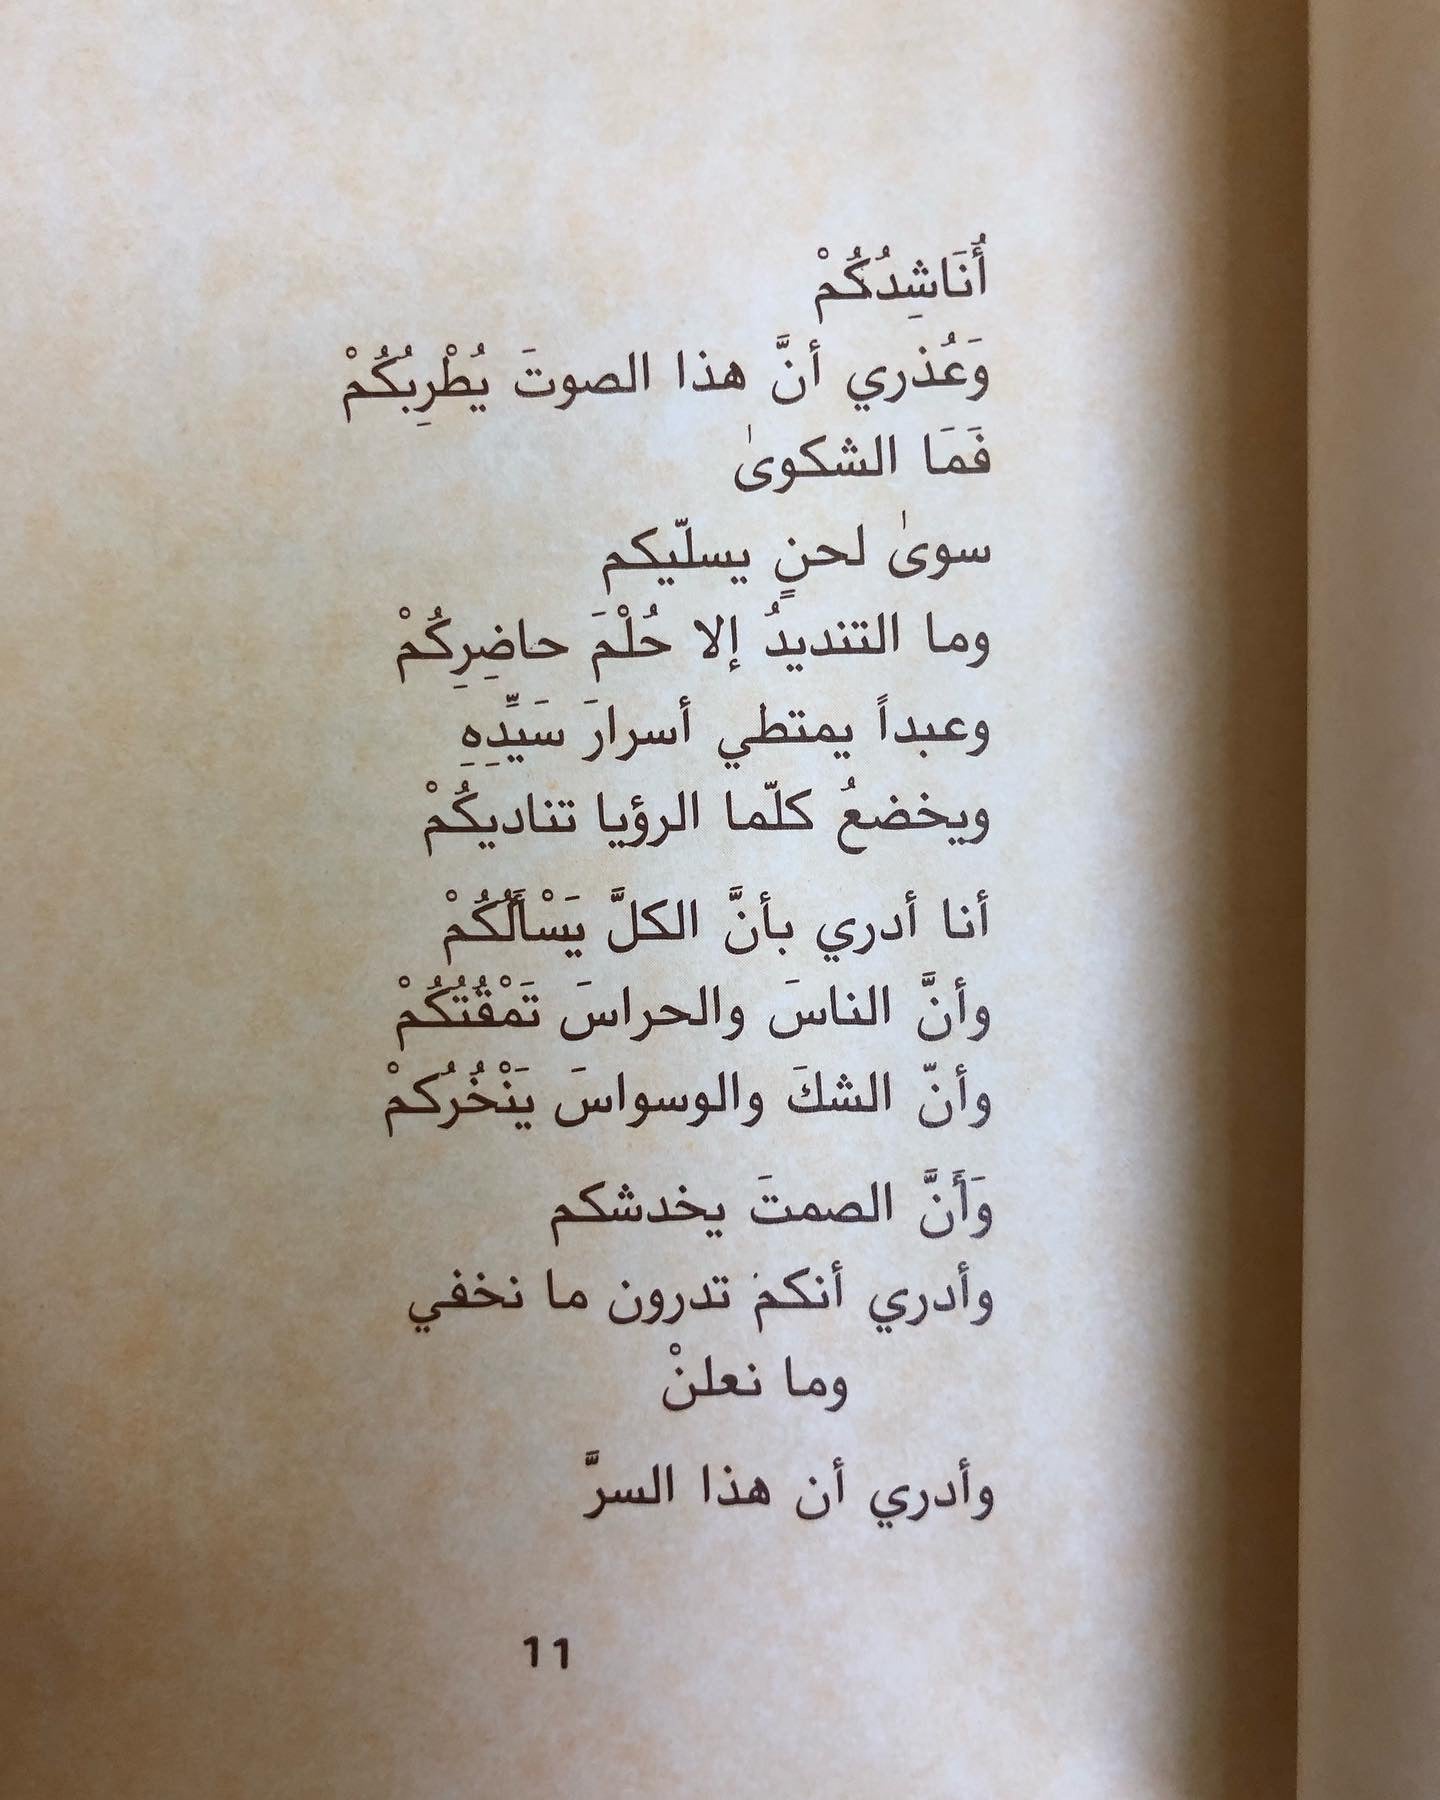 أُنَاشِدُكُمْ
وَعُذري أنَّ هذا الصوتَ يُطْرِبُكُمْ
فَمَا الشكوىٰ
سوىٰ لحنٍ يسلّيكم
وما التنديدُ إلا حُلْمَ حاضِرِكُمْ
وعبداً يمتطي أسرارَ سَيِّدِهِ
ويخضعُ كلّما الرؤيا تناديكُمْ
أنا أدري بأنَّ الكلَّ يَسْأَلُكُمْ
وأنَّ الناسَ والحراسَ تَمْقُتُكُمْ
وأنّ الشكَ والوسواسَ يَنْخُرُكمْ
وَأَنَّ الصمتَ يخدشكم
وأدري أنكمْ تدرون ما نخفي
وما نعلنْ
وأدري أن هذا السرَّ
11